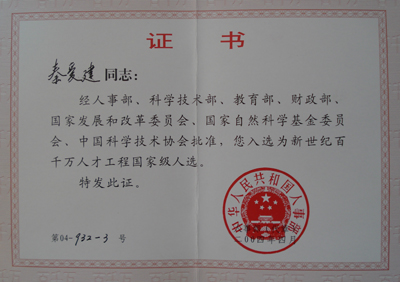 证书
秦爱建同志：
经人事部、科学技术部、教育部、财政部、
国家发展和改革委员会、国家自然科学基金委员
会、中国科学技术协会批准，您入选为新世纪百
千万人才工程国家级人选。
特发此证。
中华人民共和国人事部
二〇〇四年四月
第04-932-3号